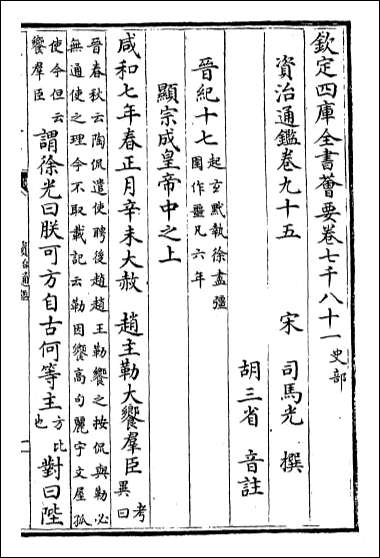 欽定四庫全書薈要卷七千八十一史部
資治通鑑卷九十五
宋司馬光撰
胡三省音註
晉紀十七起玄黓執徐盡彊
圉作噩凡六年
顯宗成皇帝中之上
咸和七年春正月辛未大赦趙主勒大饗羣臣考
異曰
晉春秋云陶侃遣使聘後趙趙王勒饗之按侃與勒必
無通使之理今不取載記云勒因饗高句麗宇文屋孤
使今但云
饗羣臣謂徐光曰朕可方自古何等主方比
也對曰陛